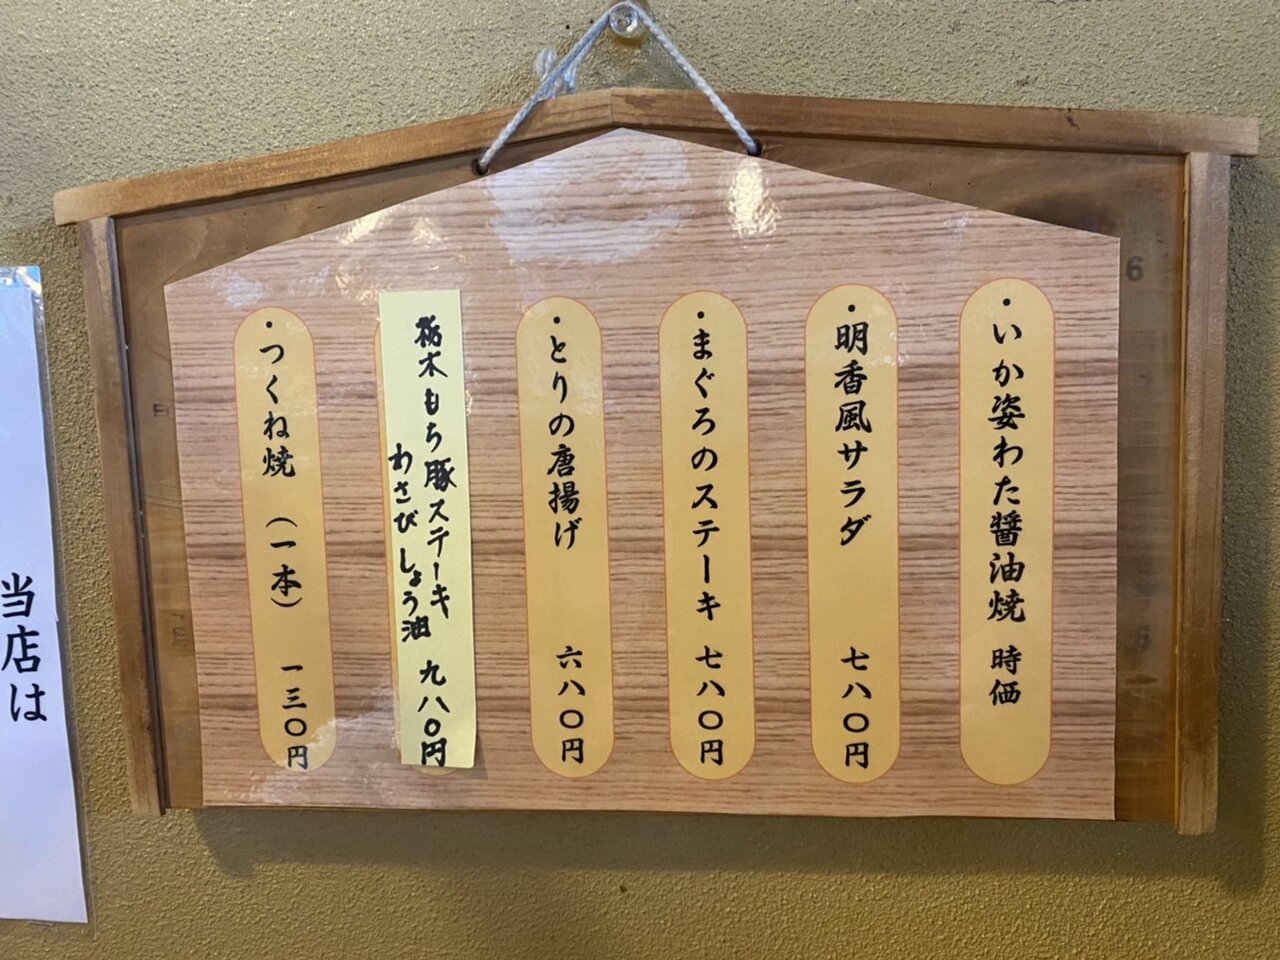 ・いか姿わた醤油焼 時価
・明香風サラダ 七八〇円
・まぐろのステーキ 七八〇円
・とりの唐揚げ 六八〇円
栃木もち豚ステーキ
わさびしょう油 九八〇円
・つくね焼 (一本) 一三〇円
当店は
6